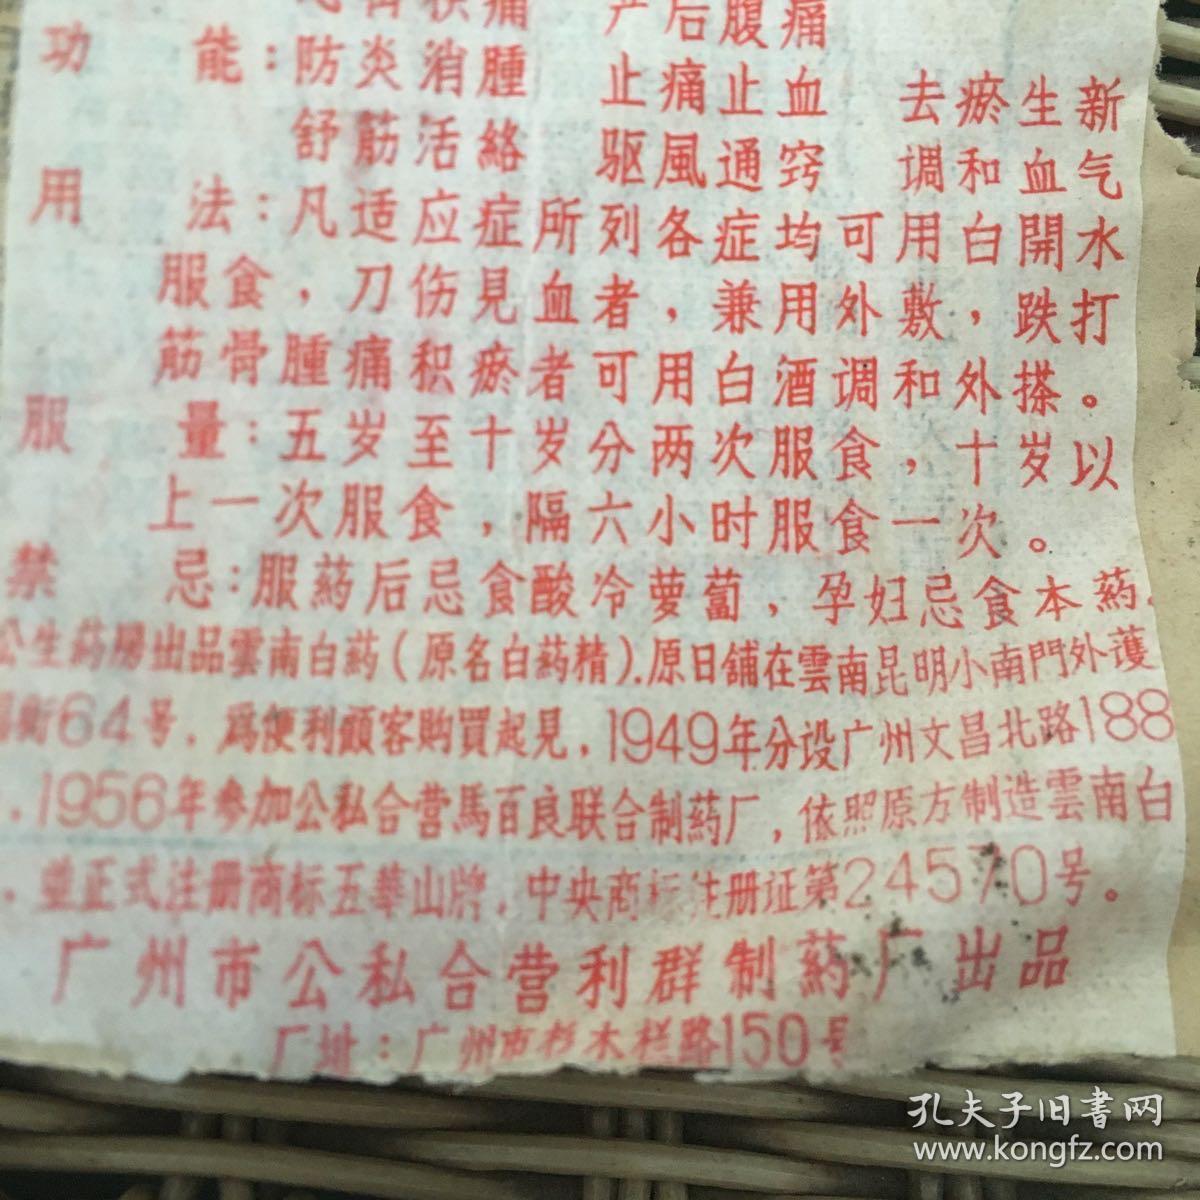 痛 产后腹痛
功 能：防炎消腫 止痛止血 去瘀生新
舒筋活絡 驱風通窍 调和血气
用 法：凡适应症所列各症均可用白開水
服食，刀伤見血者，兼用外敷，跌打
筋骨腫痛积瘀者可用白酒调和外搽。
服 量：五岁至十岁分两次服食，十岁以
上一次服食，隔六小时服食一次。
禁 忌：服药后忌食酸冷萝蔔，孕妇忌食本药．
公生药房出品雲南白药(原名白药精)．原日舖在雲南昆明小南門外護
街64号，爲便利顧客购買起見，1949年分设广州文昌北路188
，1956年参加公私合营馬百良联合制药厂，依照原方制造雲南白
，並正式注册商标五華山牌，中央商标注册证第24570号。
广州市公私合营利群制药厂出品
厂址：广州市杉木栏路150号
孔夫子旧书网
www.kongfz.com